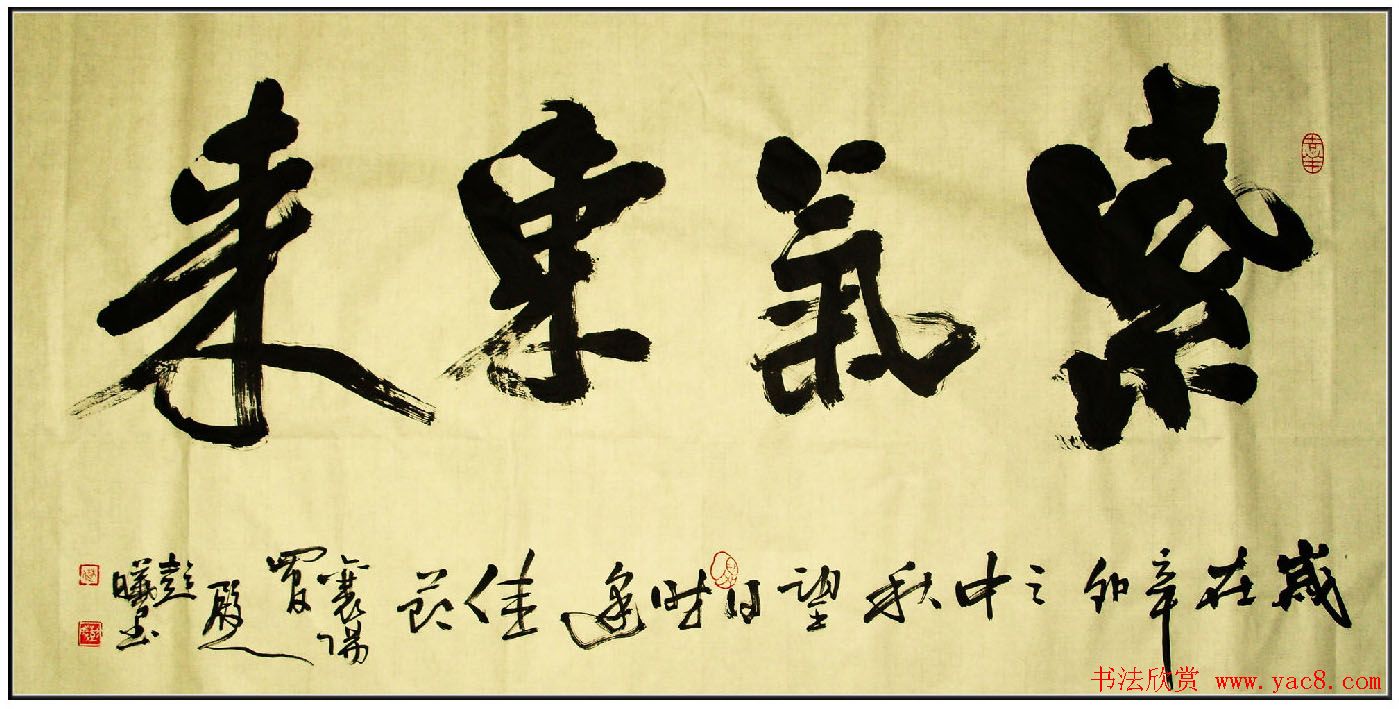 紫氣東来
歲在辛卯之中秋望日時逢佳節
襄陽
彭曦書
书法欣赏 www.yac8.com